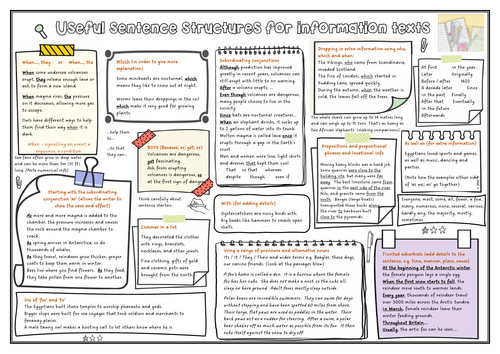 Useful Sentence Structures for information texts
When...., they    or    When.... the
When some undersea volcanoes
erupt, they release enough lava or
ash to form a new island.
When magma rises, the pressure
on it decreases, allowing more gas
to escape.
Owls have different ways to help
them find their way when it is
dark.
When - signalling an event a
sequence, a condition.
Which (in order to give more
explanation)
Some minibeasts are nocturnal, which
means they like to come out at night.
Worms leave their droppings in the soil
which make it very good for growing
plants.
Subordinating conjunctions
Although prediction has improved
greatly in recent years, volcanoes can
still erupt with little to no warning.
After a volcano erupts, ...
Even though volcanoes are dangerous,
many people choose to live in the
vicinity.
Since bats are nocturnal creatures,
When an elephant drinks, it sucks up
to 2 gallons of water into its trunk.
Molten magma is called lava once it
erupts through a gap in the Earth's
crust.
Men and women wore long, light skirts
and dresses that kept them cool.
That    so that    whereas
despite    though    even if
Dropping in extra information using who,
which and when:
The Vikings, who came from Scandinavia,
invaded Scotland.
The fire of London, which started in
Pudding Lane, spread quickly.
During the autumn, when the weather is
cold, the leaves fall off the trees.
At first    In the past
Later    Originally
Before / after    1600
A decade later    Since
In the past    Finally
After that    Eventually
In the future
Afterwards
The whale shark can grow up to 14 metres long
and can weigh up to 15 tons. That's as heavy as
two African elephants. (making comparisons)
...help them
to...
so that
they can...
BOYS (Because, or, yet, so)
Volcanoes are dangerous,
yet fascinating.
Ash from erupting
volcanoes is dangerous, so
at the first sign of danger
Sea fans often grow in deep water
and can be more than 3m (10 ft)
long (Note numerical info)
Starting with the subordinating
conjunction 'as' (allows the writer to
show the cause and effect)
As more and more magma is added to the
chamber, the pressure increases and causes
the rock around the magma chamber to
crack.
As spring arrives in Antarctica, so do
thousands of whales.
As they travel, reindeers grow thicker, greyer
coats to keep them warm in winter.
Bees live where you find flowers. As they feed,
they take pollen from one flower to another.
Think carefully about
sentence choices
Commas in a list
They decorated the clothes
with rings, bracelets,
necklaces, and other jewels.
Fine clothing, gifts of gold
and cosmetic pots were
brought from the north
WITH (for adding details)
Oystercatchers are noisy birds with
big beaks like hammers to smash open
shells.
Prepositions and prepositional
phrases and locational info
Moving heavy blocks was a hard job.
Some quarries were close to the
building site, but many were far
away. The best limestone came from
quarries in the east side of the river
Nile, and granite came from the
south. Barges (large boats)
transported these blocks along
the river to harbours built
close to the pyramids.
As well as (for extra information)
Egyptians loved sports and games,
as well as music, dancing and
parties.
(Note how the examples either side
of 'as well as' go together)
Everyone, most, some, all, fewer, a few,
many, numerous, none, several, various,
hardly any, the majority, mostly,
sometimes
Use of 'for' and 'to'
The Egyptians built stone temples to worship pharaohs and gods.
Bigger ships were built for sea voyages that took soldiers and merchants
to faraway places.
A male tawny owl makes a hooting call to let others know where he is.
Using a range of pronouns and alternative nouns
It / it / they / Their and wider terms e.g. Beagles, these dogs,
our canine friends. (Look at the paragraph below)
A fox's home is called a den. It is a burrow where the female
fox has her cubs. She does not make a nest, so the cubs all
sleep on bare ground. Adult foxes mostly sleep outside.
Polar bears are incredible swimmers. They can swim for days
without stopping and have been spotted 60 miles from shore.
Their large, flat paws are used as paddles in the water. Their
back paws act as a rudder for steering. After a swim, a polar
bear shakes off as much water as possible from its fur. It then
rubs itself against the snow to dry off.
Fronted adverbials (add details to the
sentence, e.g. time, manner, place, cause)
At the beginning of the Antarctic winter,
the female penguin lays a single egg.
When the first snow starts to fall, the
reindeer move south to warmer lands.
Every year, thousands of reindeer travel
over 3000 miles across the Arctic tundra.
In March, female reindeer leave their
winter feeding grounds.
Throughout Britain...
Usually, the artic fox can be seen...